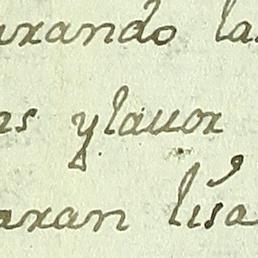 arando la
as y lauor
aran lisa